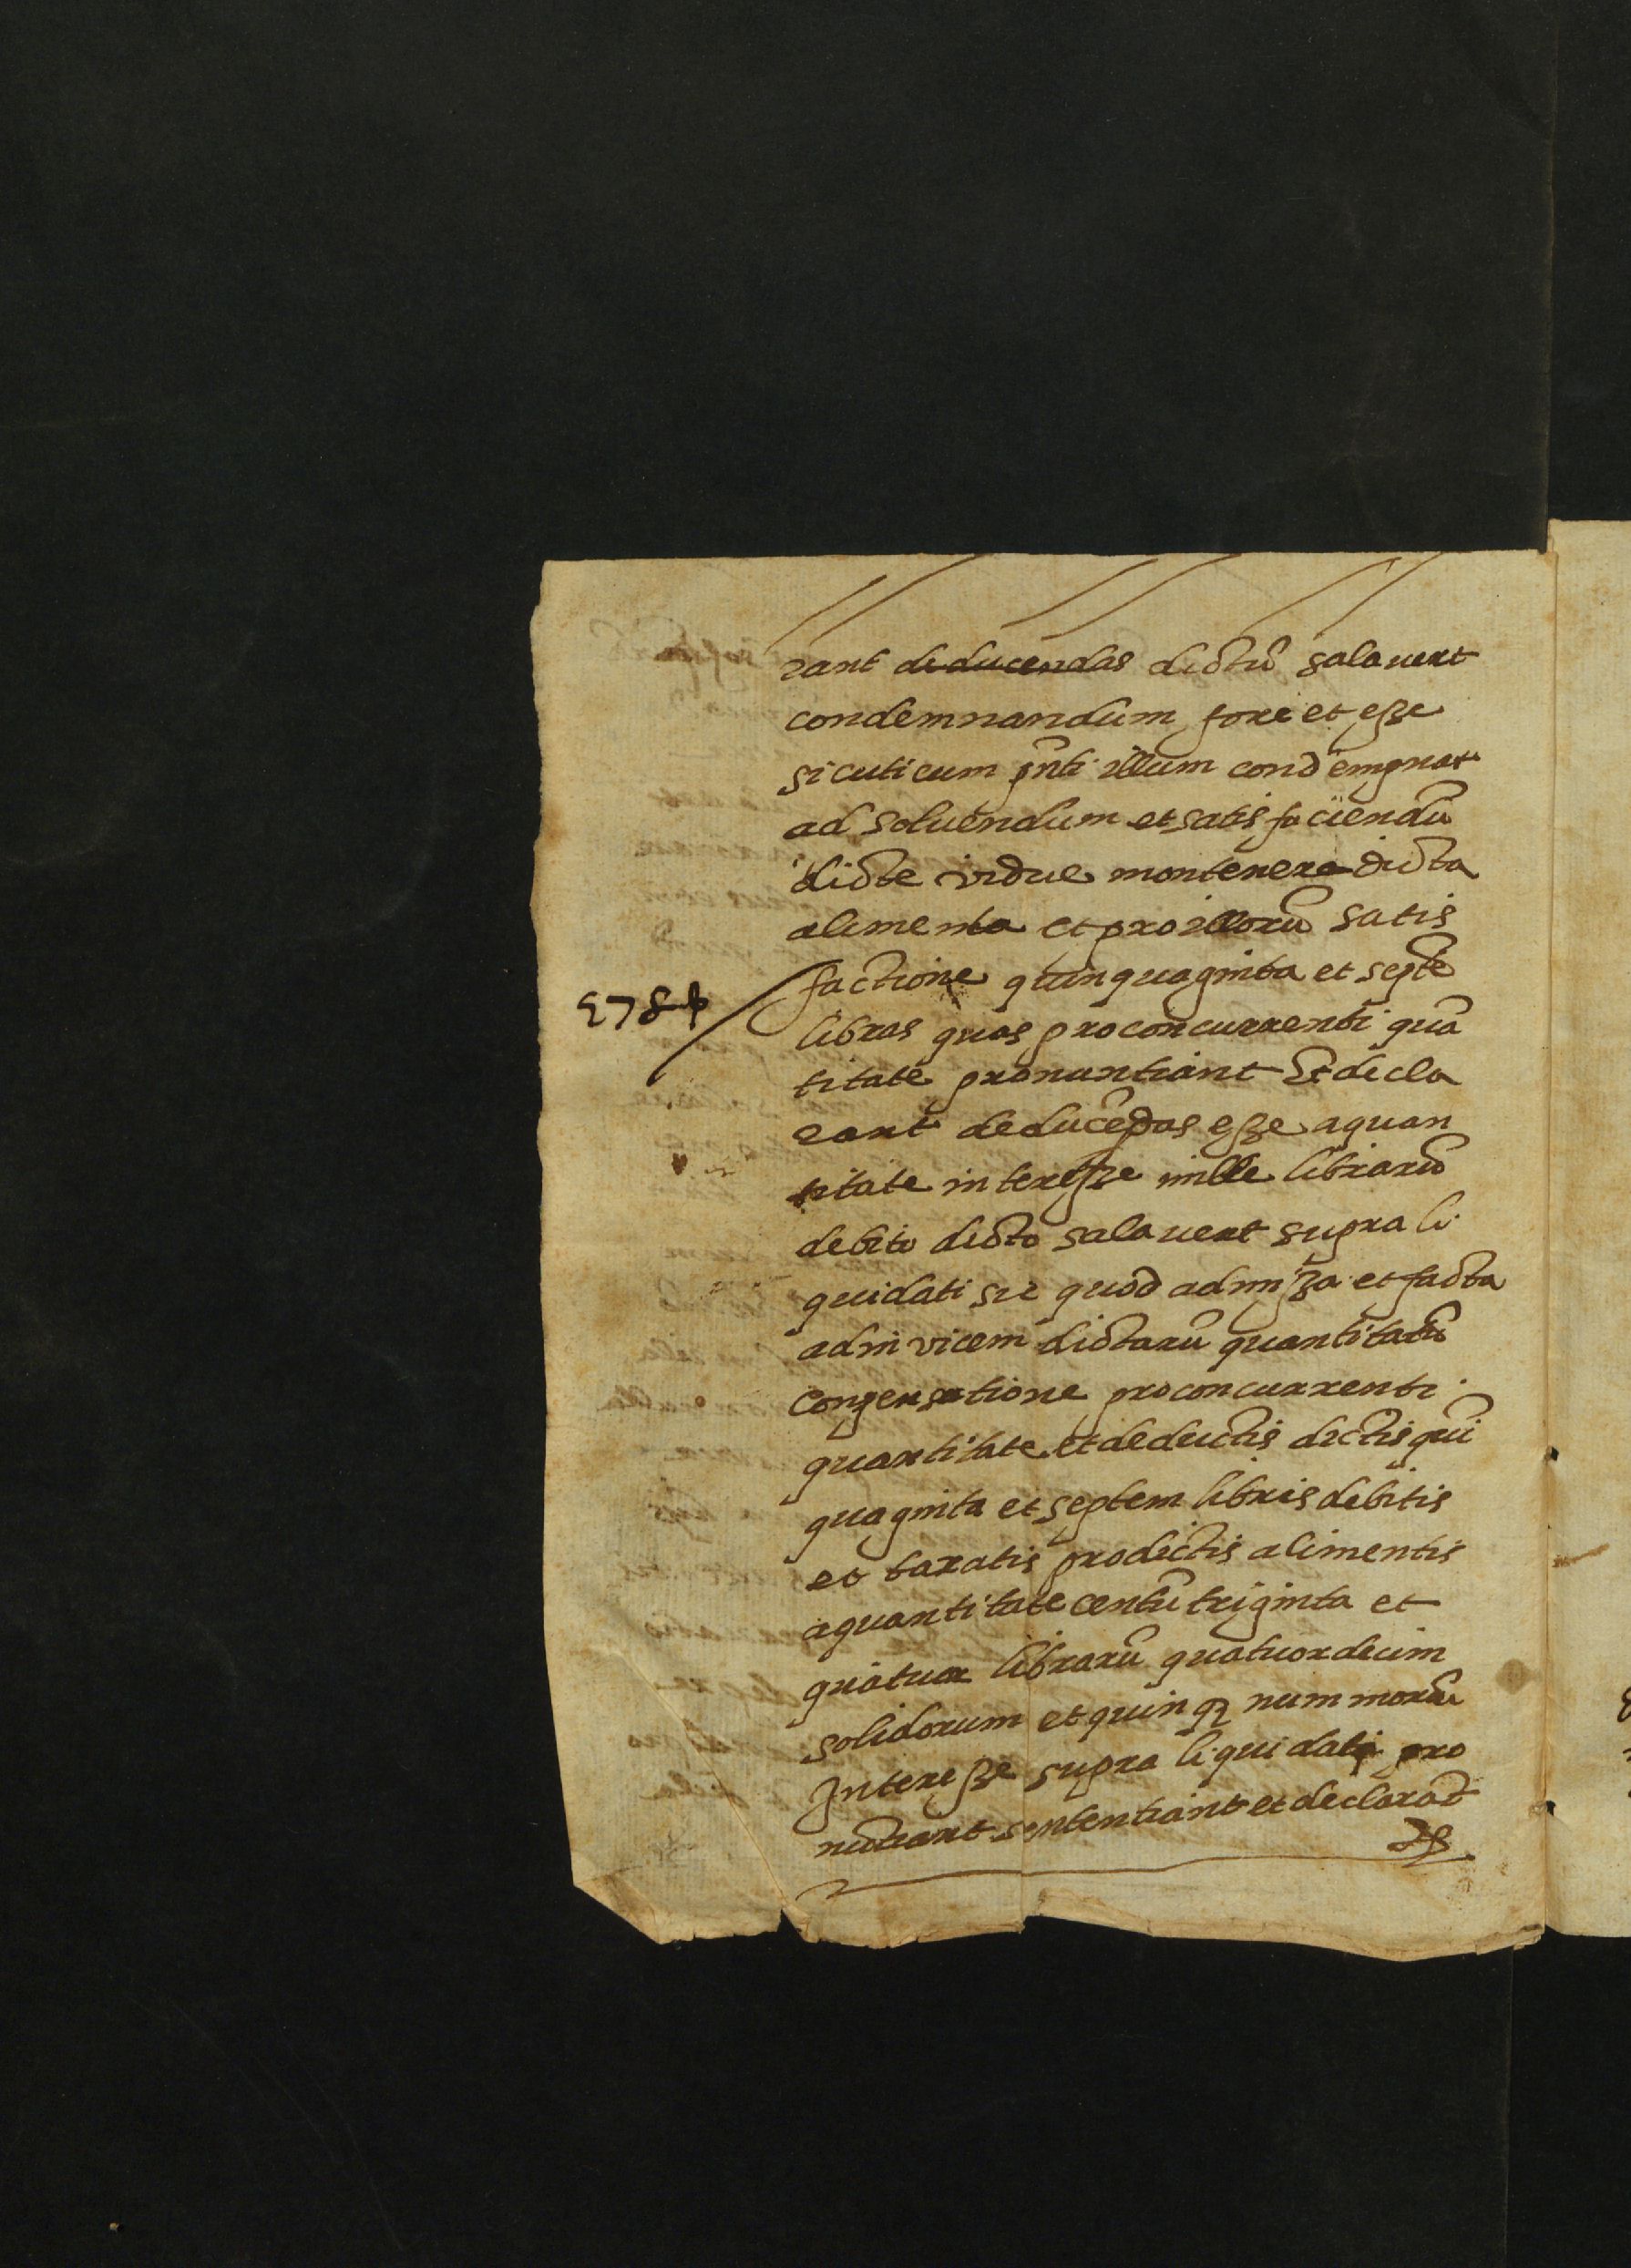 rant deducendas dictũ salauert
condemnandum fore et esse
sicuti cum pñti illum condempnat
ad soluendum et satis faciendũ
dicte vidue montenera dicta
alimenta et pro illorũ satis
factione quinquaginta et septẽ
libras quas pro concurrenti quã
titate pronuntiant et decla
rant deducẽdas esse a quan
titate interesse mille librarũ
debito dicto salauert supra li
quidati sic quod admissa et facta
ad in vicem dictarũ quantitatũ
conpensatione pro concurrenti
quantitate et deductis dictis quĩ
quaginta et septem libris debitis
et taxatis pro dictis alimentis
a quantitate centũ triginta et
quatuor librarũ quatuordecim
solidorum et quinqȝ nummorũ
Interesse supra liquidati pro
nũtiant sententiant et declarãt